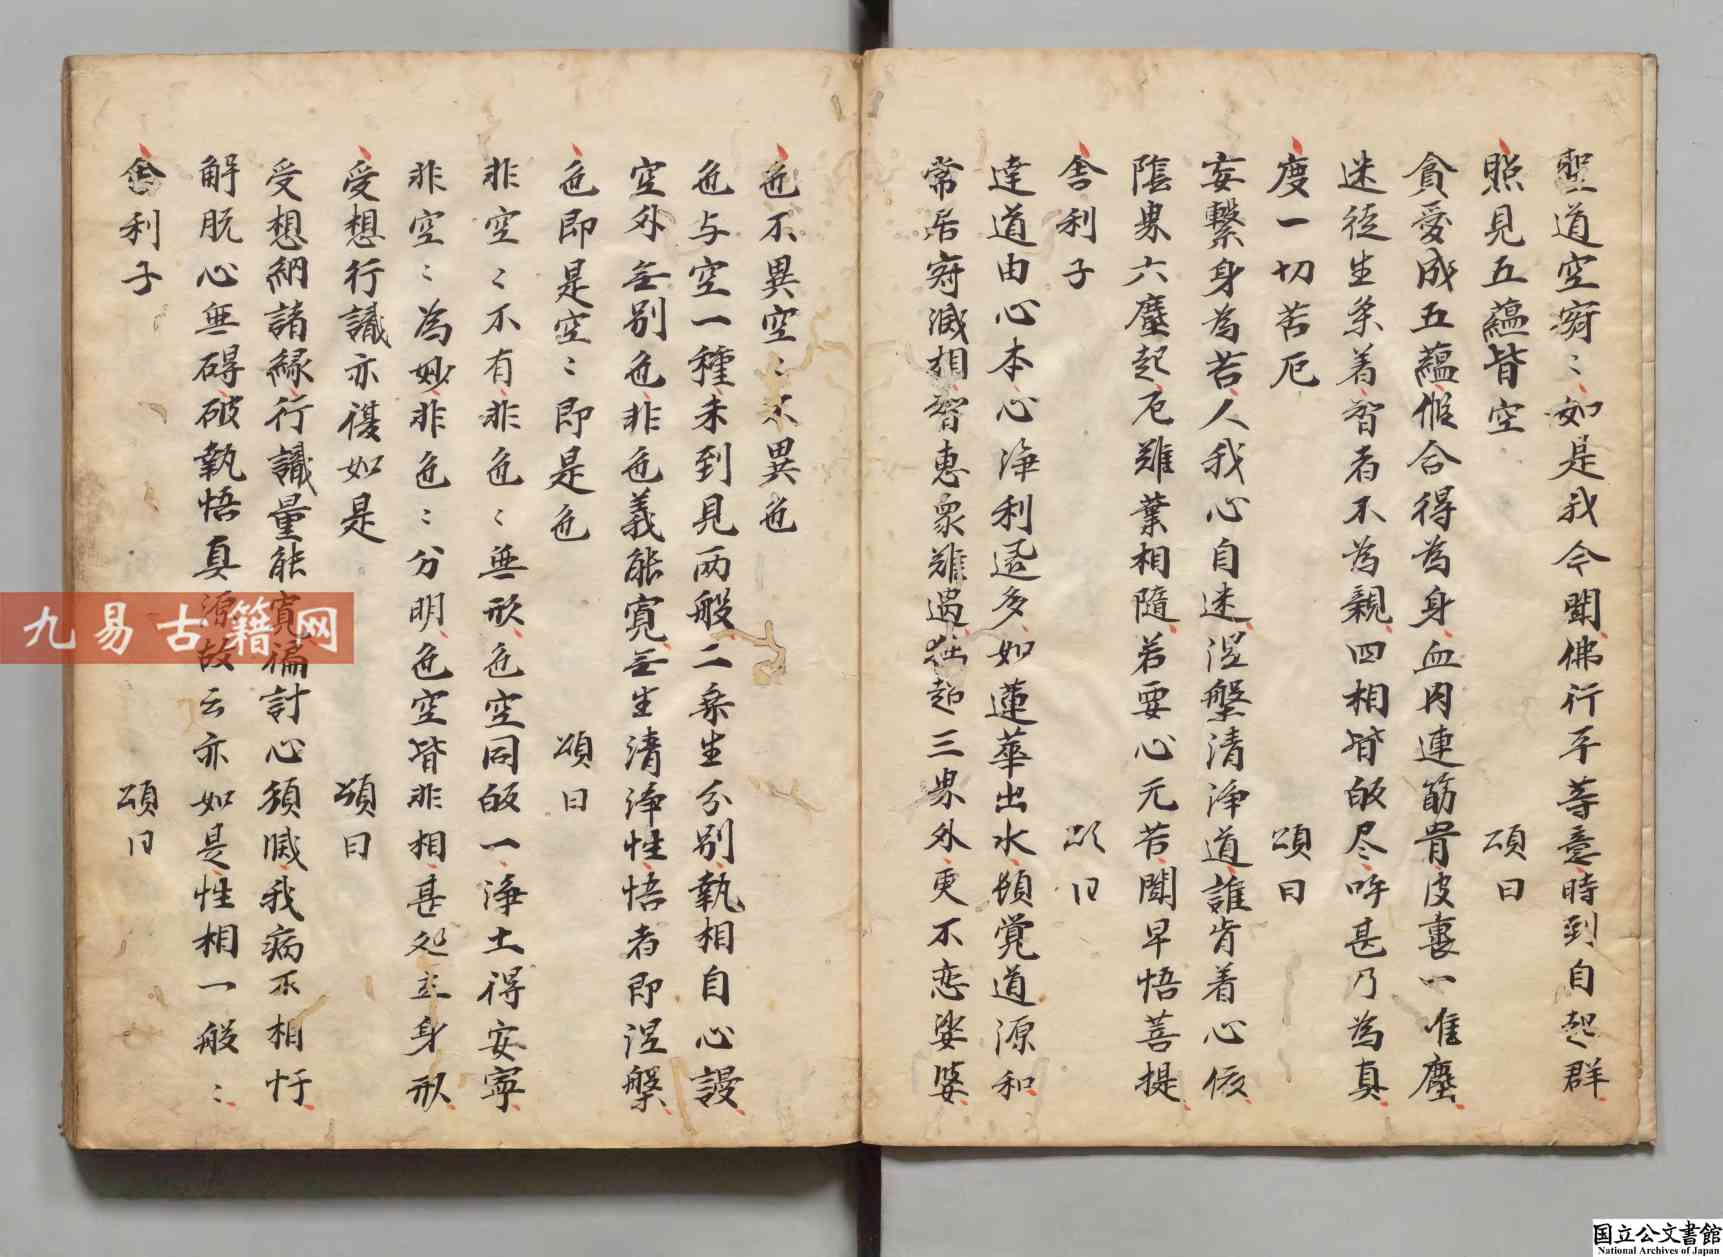 聖道空寂〻如是我今聞佛行平等意時到自起群
照見五蘊皆空　頌曰
貪愛成五蘊假合得為身血肉連筋骨皮裹一堆塵
迷徒生桒着智者不為親四相皆皈尽呼甚乃為真
度一切苦厄　頌曰
妄繫身為苦人我心自迷涅槃清浄道誰肯着心依
陰界六塵起厄難業相随若要心元苦聞早悟菩提
舍利子　頌曰
達道由心本心浄利還多如蓮華出水頓覚道源和
常居寂滅相智惠衆難過独超三界外更不恋娑婆
色不異空〻不異色
色与空一種未到見両般二乗生分別執相自心謾
空外无別色非色義能寛无生清浄性悟者即涅槃
色即是空〻即是色　頌曰
非空〻不有非色〻無形色空同皈一浄土得安寧
非空〻為妙非色〻分明色空皆非相甚処立身形
受想行識亦復如是　頌曰
受想納諸縁行識量能寛徧計心須滅我病不相忓
解脱心無碍破執悟真源故云亦如是性相一般〻
舍利子　頌曰
九易古籍网
国立公文書館
National Archives of Japan